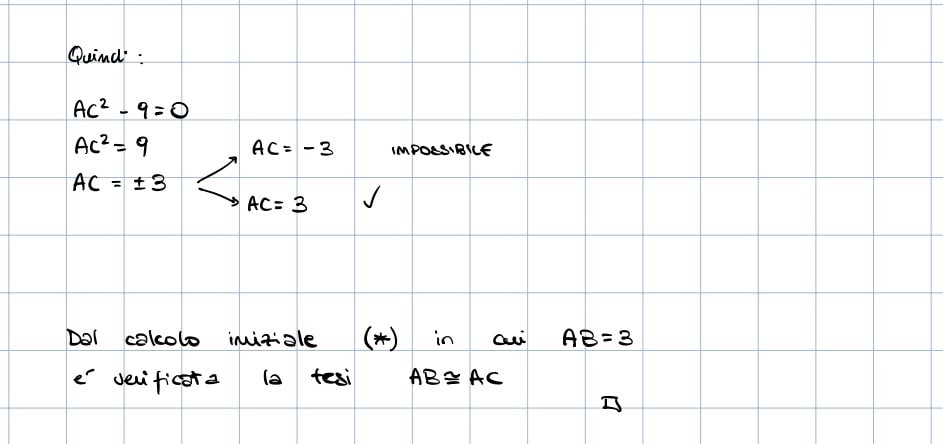 Quindi :
AC² - 9 = 0
AC² = 9
AC = ± 3
AC = - 3 IMPOSSIBILE
AC = 3 ✓
Dal calcolo iniziale (*) in cui AB = 3
e' verificata la tesi AB ≅ AC
□